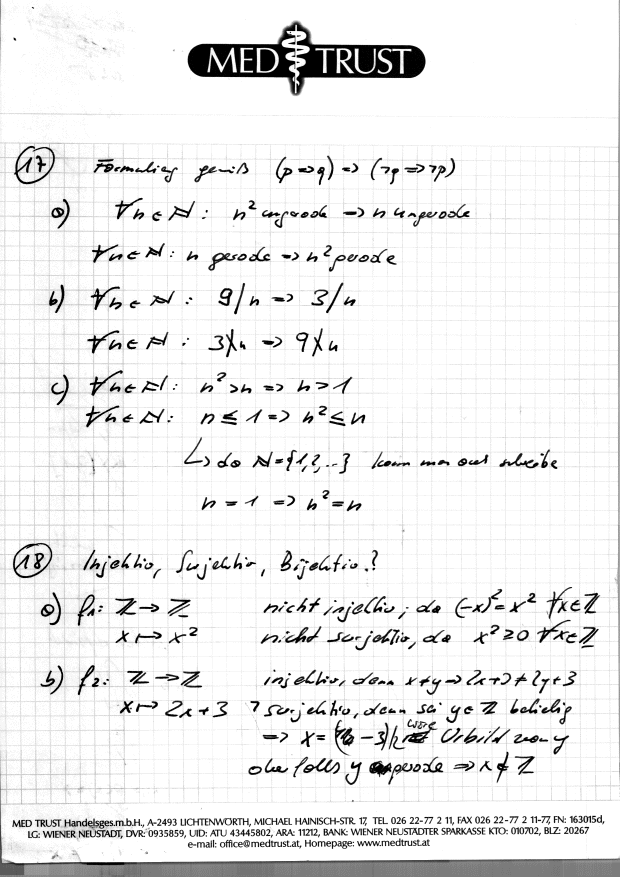 MED TRUST
17 Formulierg gemäß (p => q) => (¬q => ¬p)
a) ∀n ∈ ℕ : n² ungerade => n ungerade
∀n ∈ ℕ : n gerade => n² gerade
b) ∀n ∈ ℕ : 9/n => 3/n
∀n ∈ ℕ : 3∤n => 9∤n
c) ∀n ∈ ℕ : n² > n => n > 1
∀n ∈ ℕ : n ≤ 1 => n² ≤ n
↳ da ℕ = {1,2,...} kann man auch schreibe
n = 1 => n² = n
18 Injektiv, Surjektiv, Bijektiv?
a) f₁: ℤ → ℤ nicht injektiv; da (-x)² = x² ∀x ∈ ℤ
x ↦ x² nicht surjektiv, da x² ≥ 0 ∀x ∈ ℤ
b) f₂: ℤ → ℤ injektiv, denn x ≠ y => 2x+3 ≠ 2y+3
x ↦ 2x+3 ¬ surjektiv, denn sei y ∈ ℤ beliebig
=> x = (y-3)/2 wäre Urbild von y
aber falls y gerade => x ∉ ℤ
MED TRUST Handelsges.m.b.H., A-2493 LICHTENWORTH, MICHAEL HAINISCH-STR. 17, TEL. 026 22-77 2 11, FAX 026 22-77 2 11-77, FN: 163015d,
LG: WIENER NEUSTADT, DVR: 0935859, UID: ATU 43445802, ARA: 11212, BANK: WIENER NEUSTÄDTER SPARKASSE KTO: 010702, BLZ: 20267
e-mail: office@medtrust.at, Homepage: www.medtrust.at